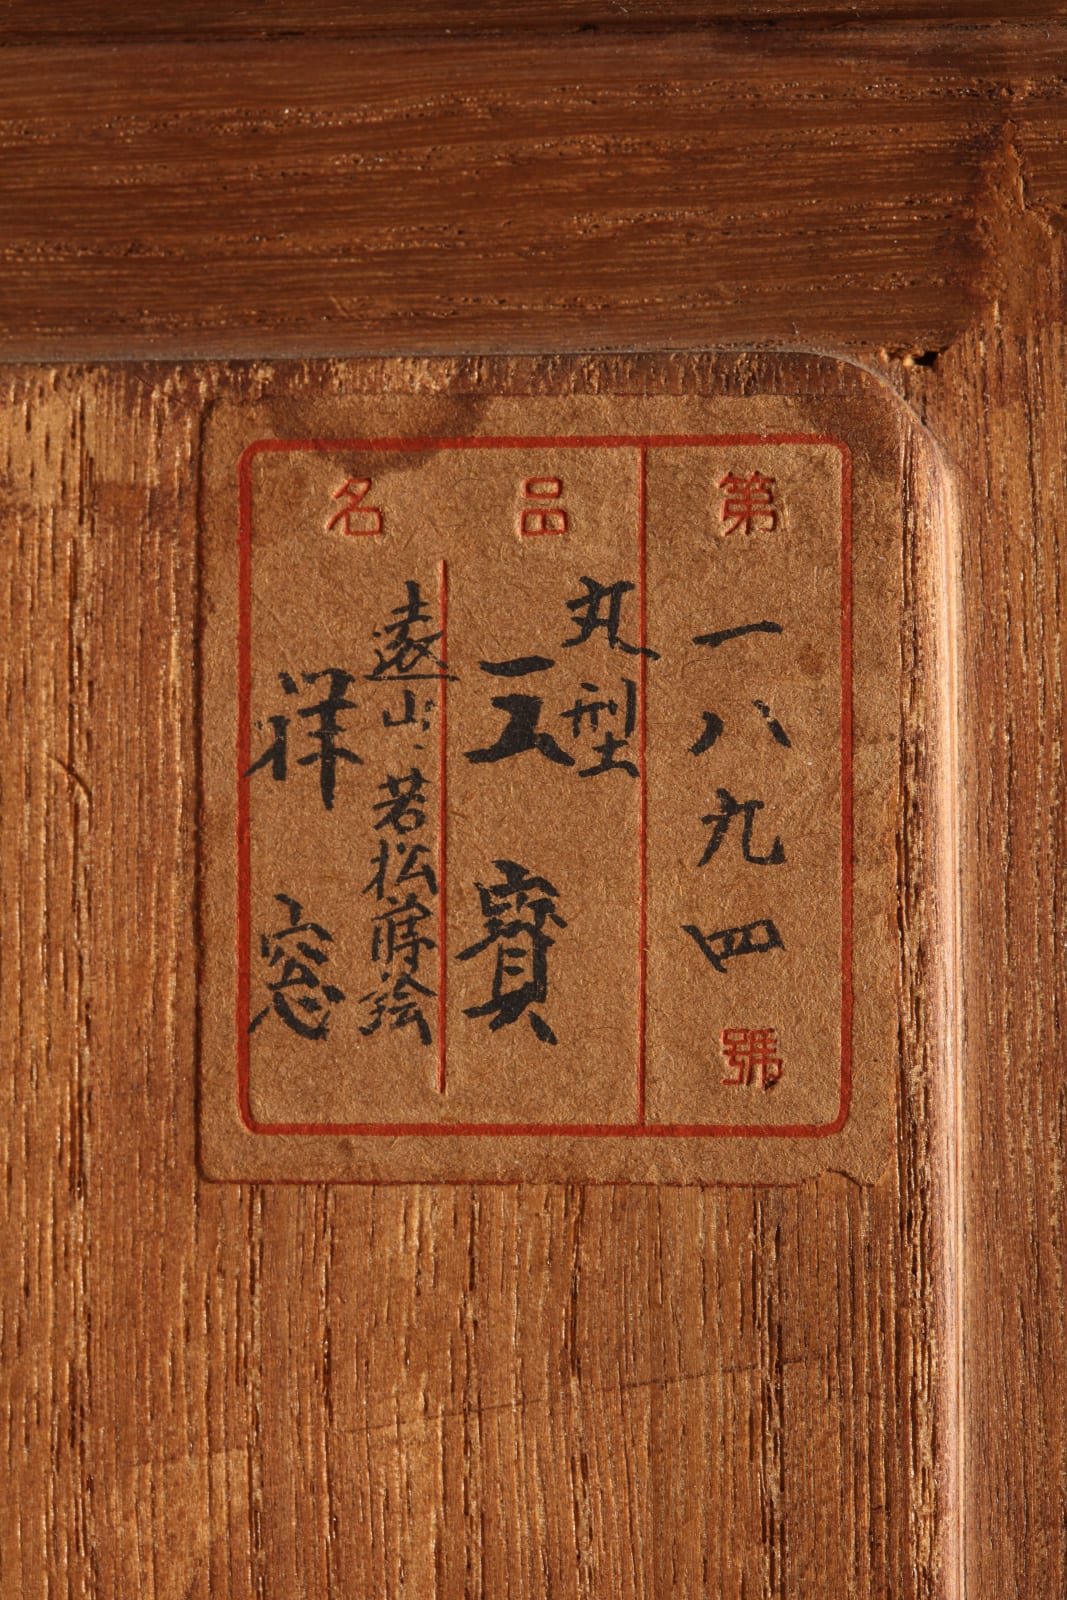 第一八九四號
品
丸型
三寳
名
遠山、若松蒔絵
祥窓